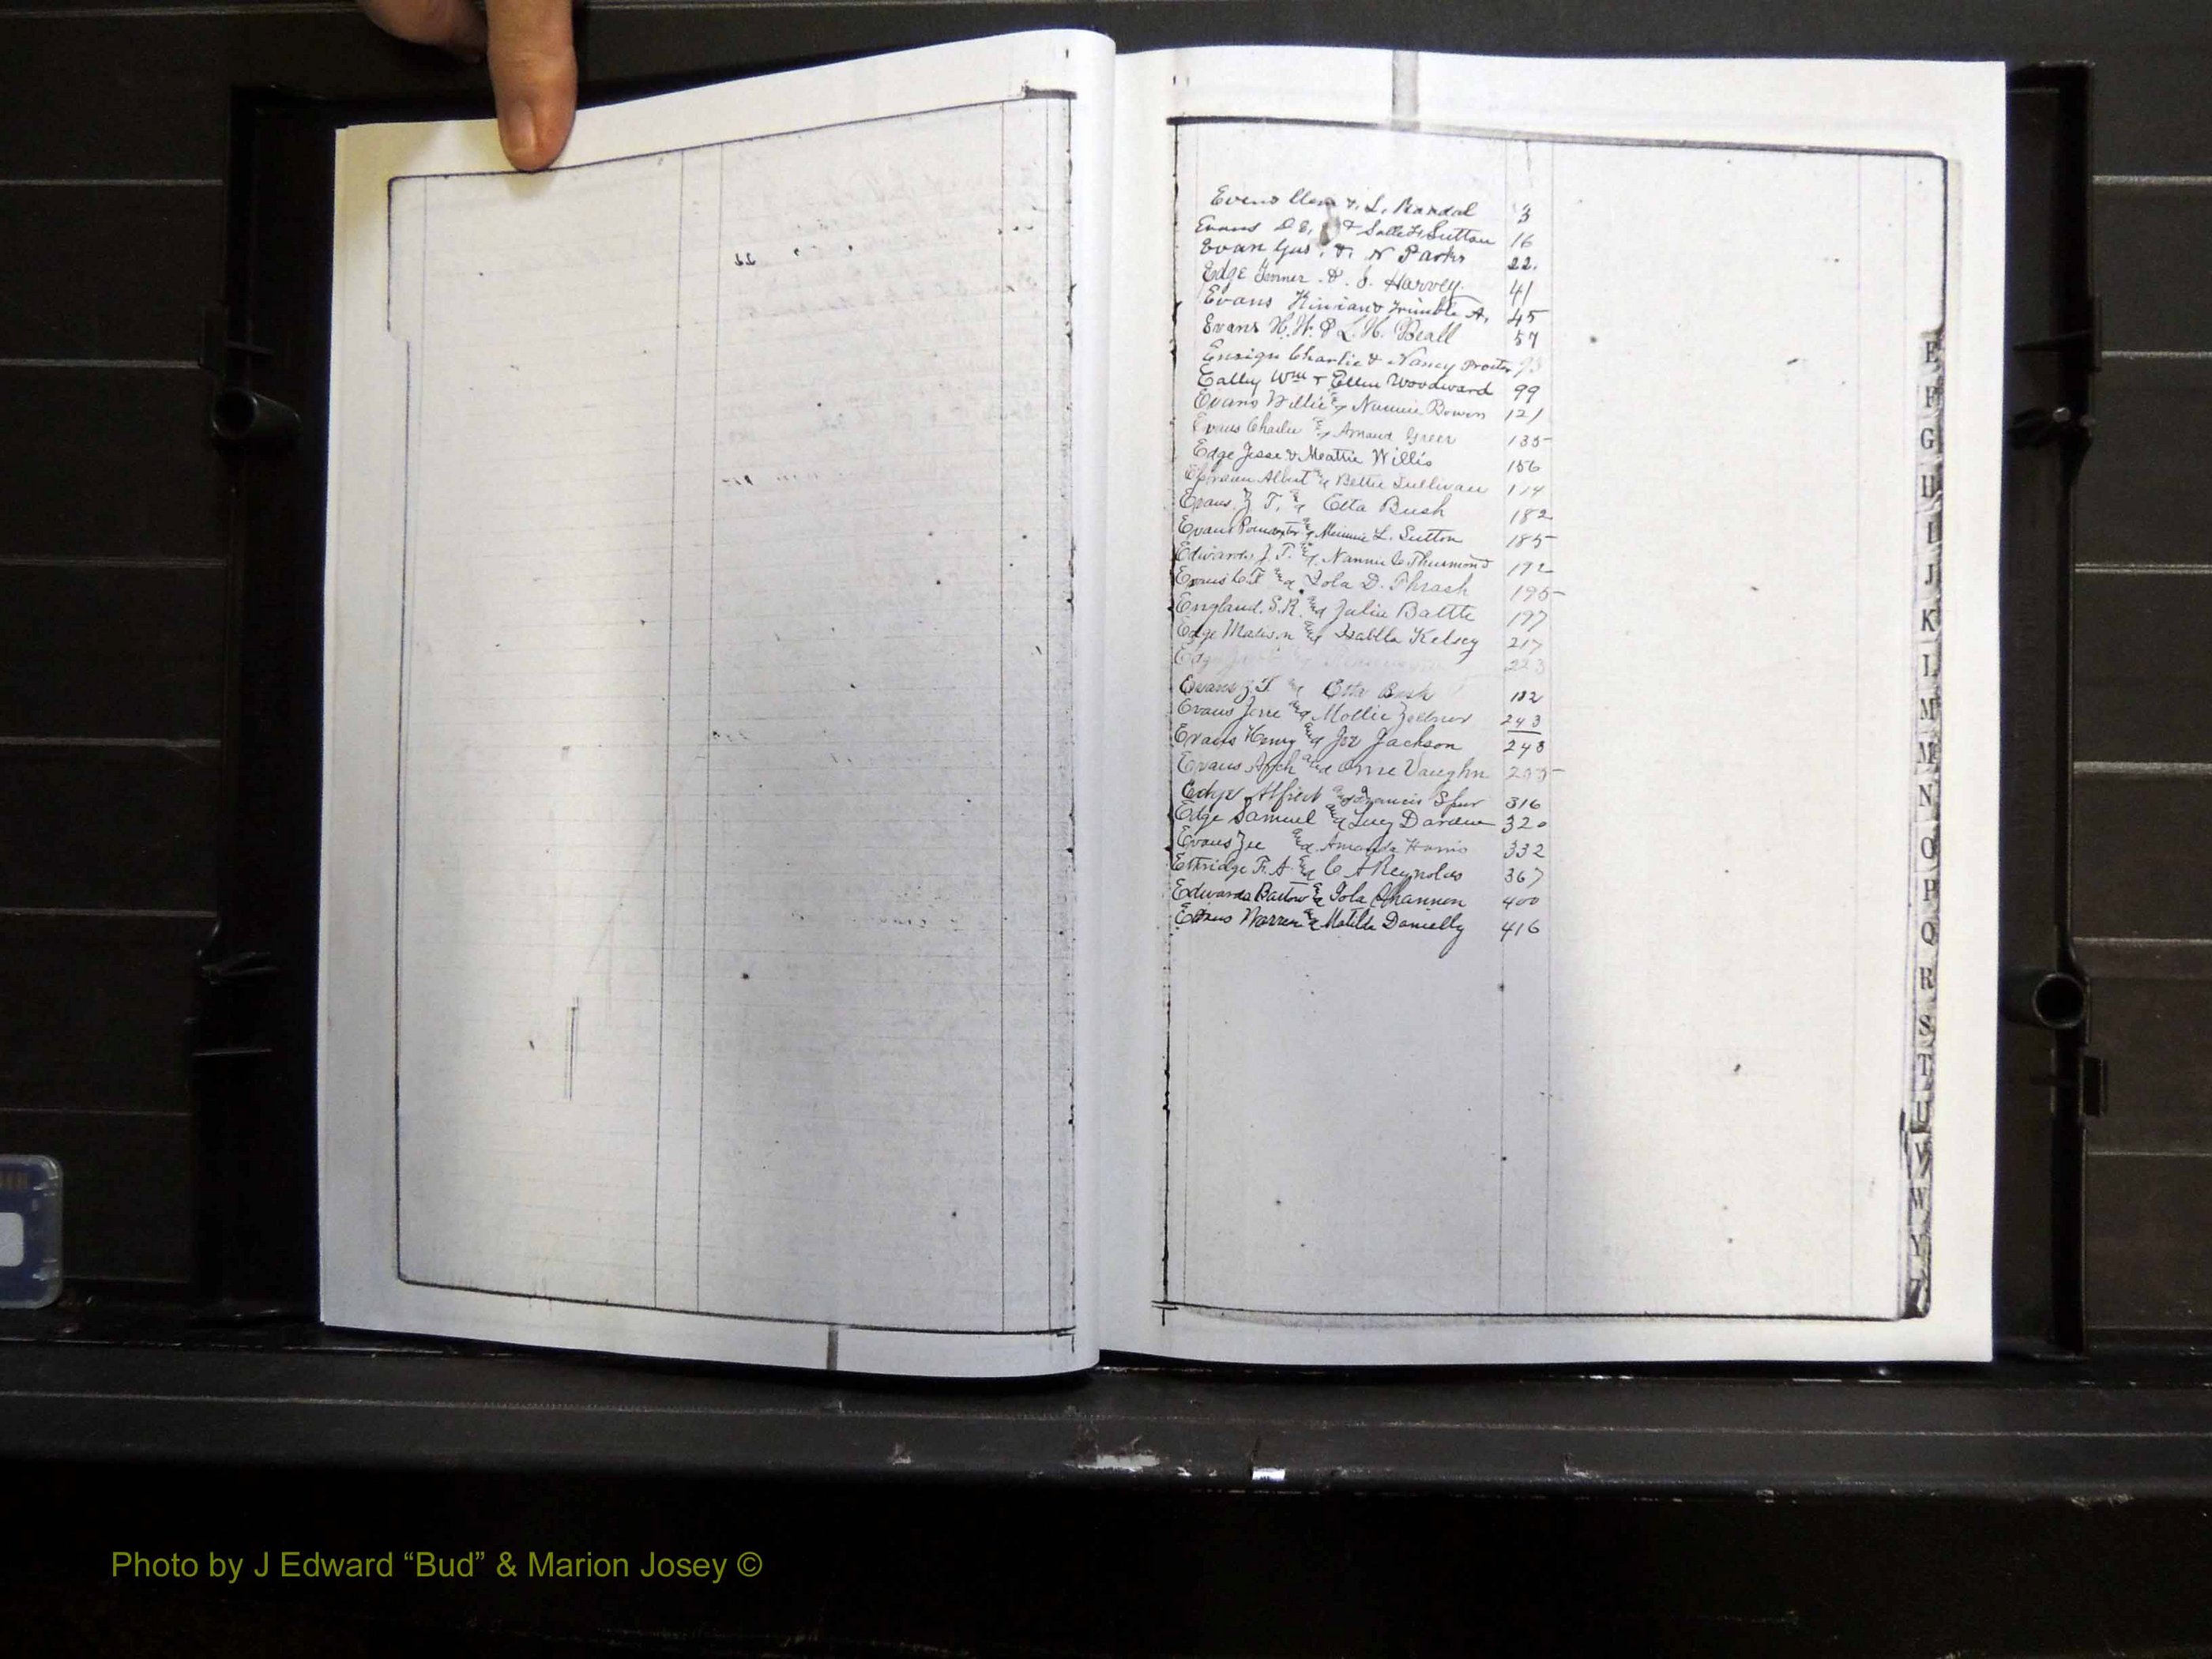 Evans & L. Randal 3
Evans D E, & Sallie Sutton 16
Evan Gus, & N Parks 22.
Edge & J. Harvey. 41
Evans & Trimble A, 45
Evans H. W. & L. H. Beall 57
Ensign Charlie & Nancy Proctor 93
Ealley Wm & Ellen Woodward 99
Evans Willie & Nannie Bowen 121
Evans Charlie & Greer 135
Edge Jesse & Mattie Willis 156
Ephraim Albert & Bettie Sullivan 174
Evans, Z T, & Etta Bush 182
Evans Poindexter & Minnie L. Sutton 185
Edwards, J. T. & Nannie C Thurmond 192
Evans C. F & Iola D. Thrash 195
England, S. R. & Julia Battle 197
Edge Madison & Isablla Kelsey 217
Edge 223
Evans Z T. & Etta Bush 182
Evans Jerre & Mollie Zellner 243
Evans Henry & Joe Jackson 248
Evans, Arch and Vaughn
Edge Alfred and Francis Spur 316
Edge Samuel and Lucy Darden 320
Evans Zee and Amanda Harris 332
Ethridge F. A. and C A Reynolds 367
Edwards Bartow & Iola Channon 400
Evans Warren & Matilda Danielly 416
E
F
G
H
I
J
K
L
M
M
N
O
P
Q
R
S
T
U
V
W
Y
Z
Photo by J Edward “Bud” & Marion Josey ©